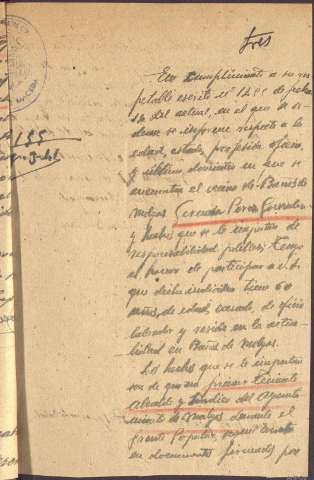 tres
En cumplimiento a su res-
petable escrito nº 1255 de fecha
del actual, en el que se or-
dena se informe respecto a la
edad, estado, profesión, oficio,
y último domicilio en que se
encuentra el vecino de Baños de
Molgas Perez Gonzalez
y hechos que se le imputan de
responsabilidad política; tengo
el honor de participar a V.S.
que dicho individuo tiene 60
años, de edad, casado, de oficio
labrador y reside en la actua-
lidad en Baños de Molgas.
Los hechos que se le imputan
son de que fué primer Teniente
Alcalde y Sindico del Ayunta-
miento de Molgas durante el
frente Popular,
en documentos firmados por
155